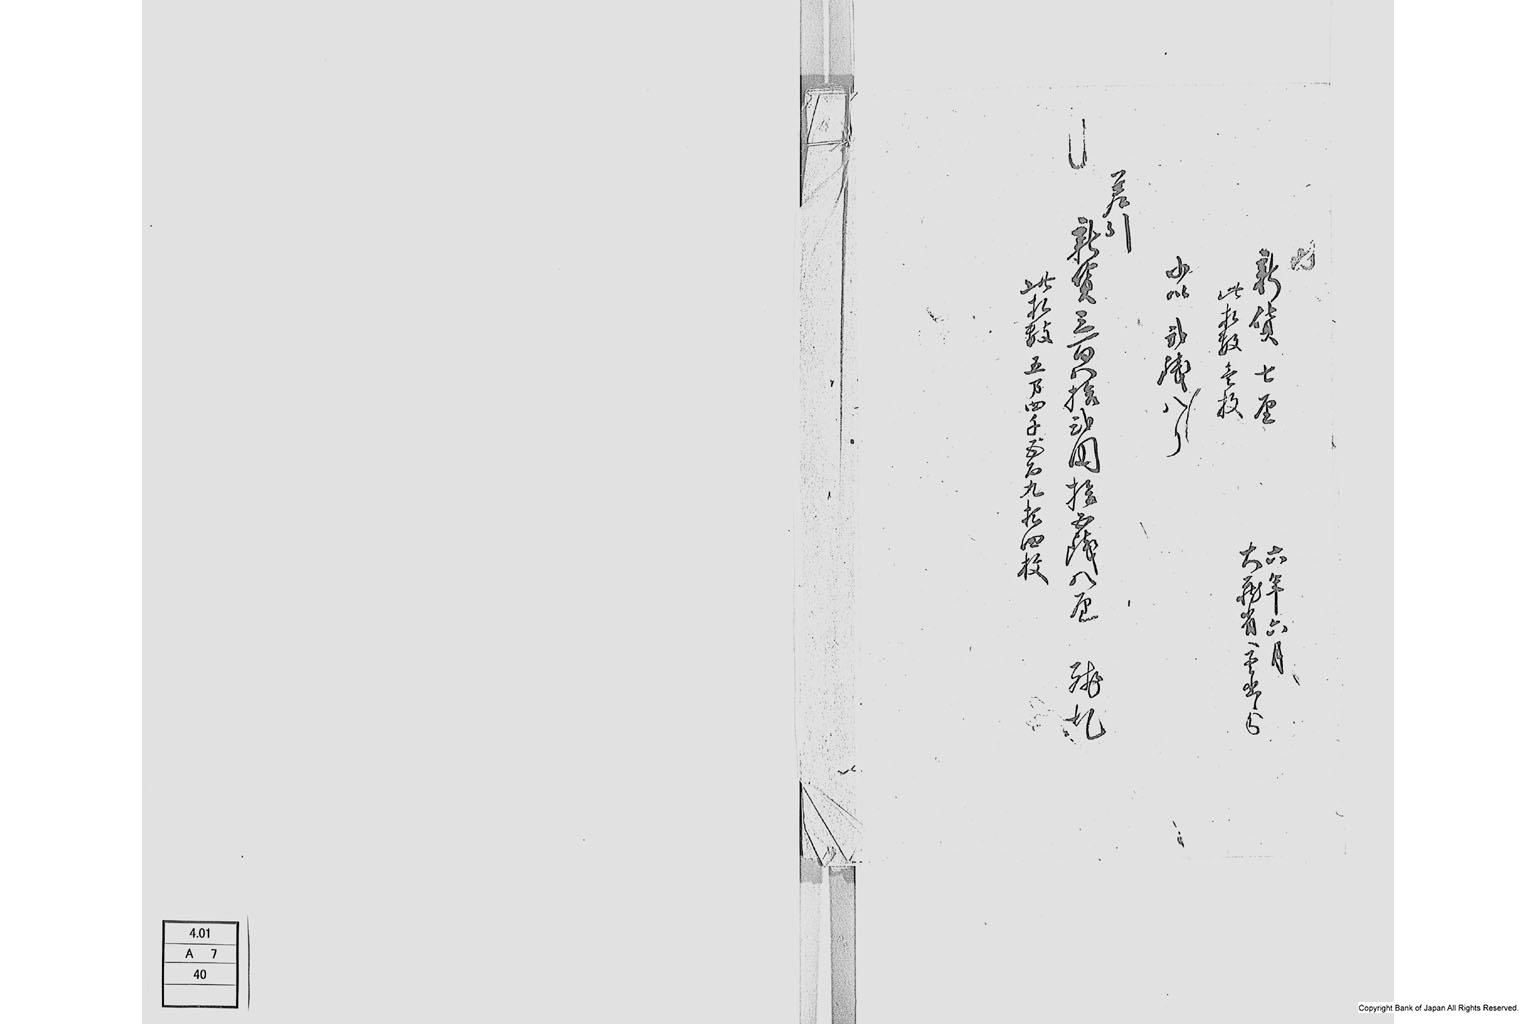 内
新貨七厘
此札数壱枚
六年六月
大蔵省
小以弐銭八り
差引
新貨三百八拾弐圓拾五銭八厘 残札
此札数五万四千五百九拾四枚
4.01
A 7
40
Copyright Bank of Japan All Rights Reserved.